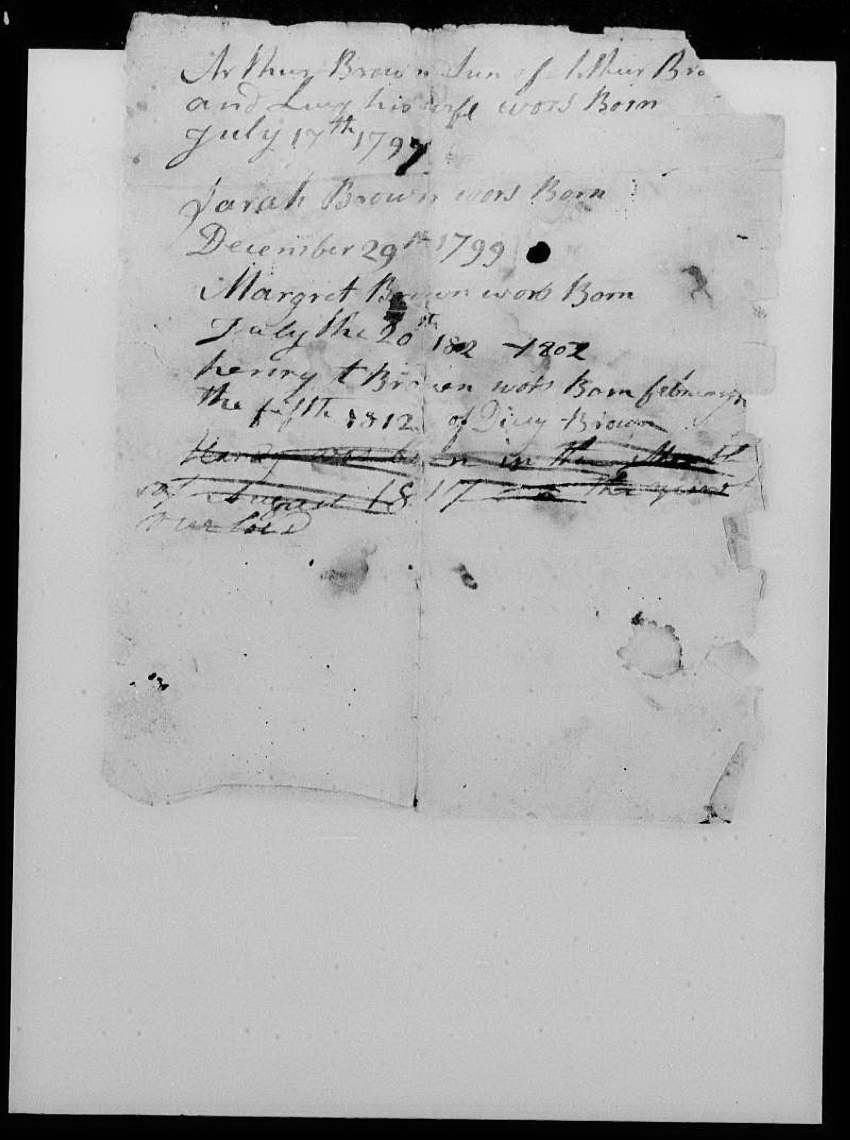 Arthur Brown Sun of Arthur Bro
and Lucy his wife wors Born
July 17th 1797
Sarah Brown wors Born
December 29th 1799
Margret Brown wors Born
July the 20th 182 1802
henry t Brown wors Born february
the fifth 1812 of Dicy Brown
Hardy was born in the Month
of August 1817 the year
our lord